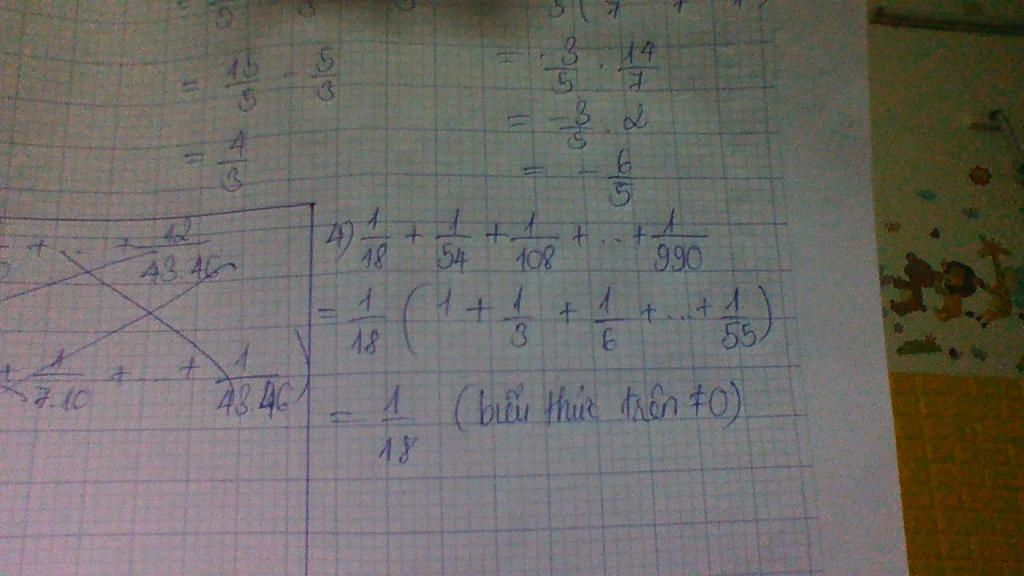 = 15/3 - 5/3
= 4/3
= -3/5 . 14/7
= -3/5 . 2
= - 6/5
+ ... + 12/43.46
+ 1/7.10 + ... + 1/43.46)
4) 1/18 + 1/54 + 1/108 + ... + 1/990
= 1/18 ( 1 + 1/3 + 1/6 + ... + 1/55 )
= 1/18 (biểu thức trên ≠ 0)